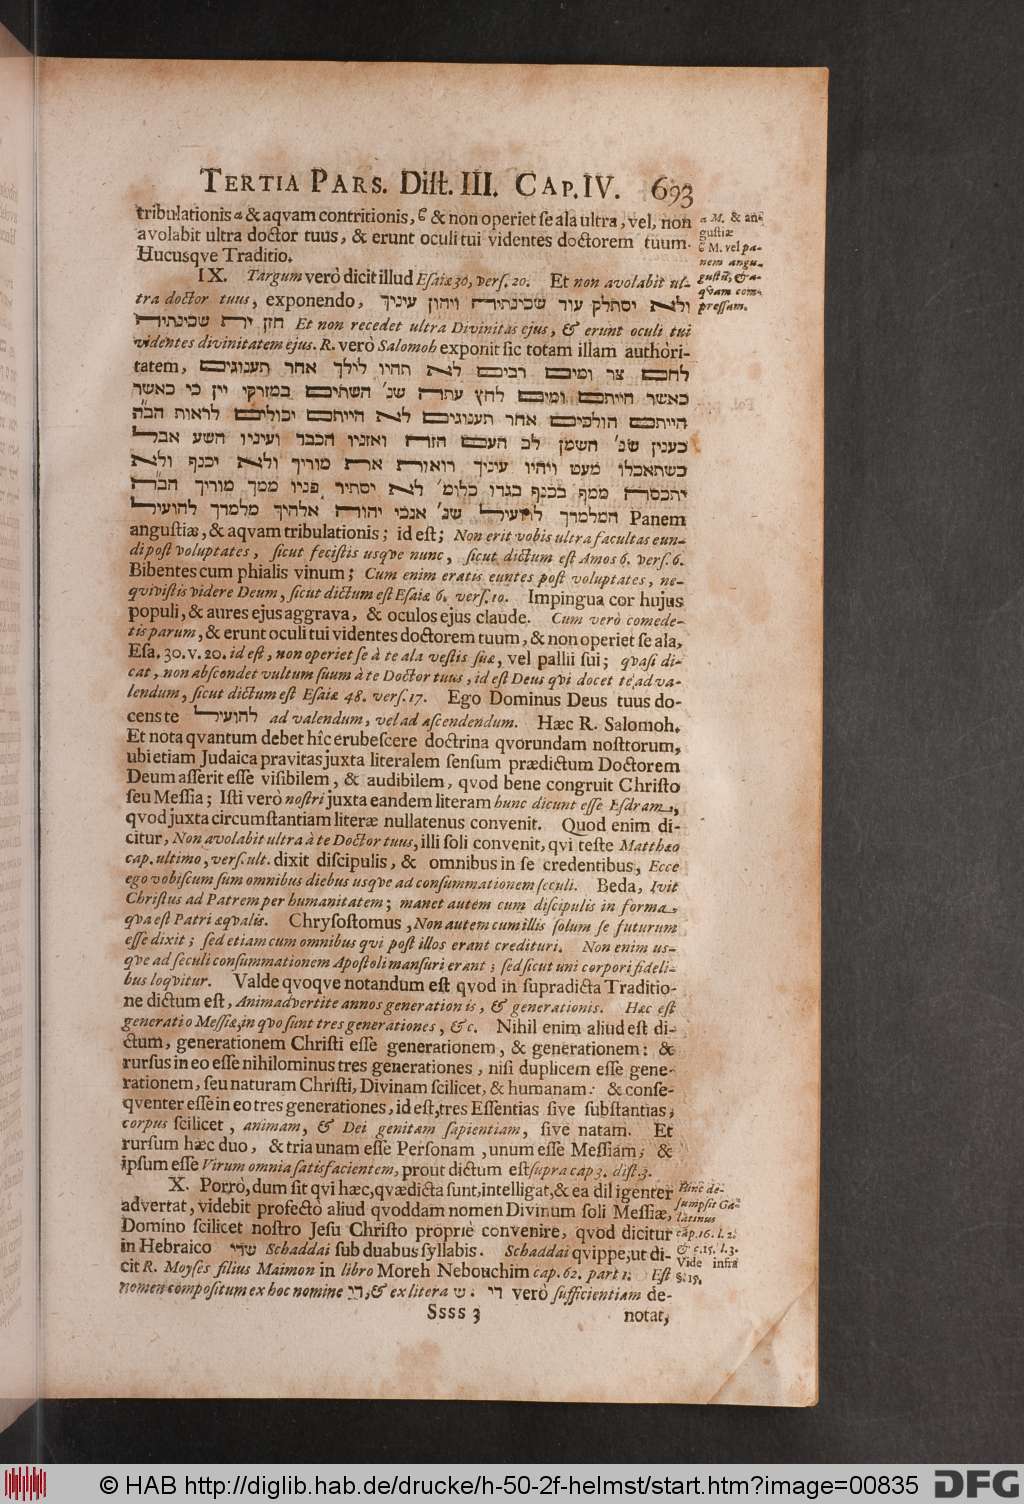 TERTIA PARS. Diſt. III. CAP. IV. 693
tribulationis a & aqvam contritionis, & non operiet ſe ala ultra, vel, non
avolabit ultra doctor tuus, & erunt oculi tui videntes doctorem tuum.
Hucusqve Traditio.
a M. & an-
guſtiæ
M. vel pa-
nem angu-
ſtiæ, & a-
qvam com-
preſſam.
IX. Targum verò dicit illud Eſaiæ 30, verſ. 20. Et non avolabit ul-
tra doctor tuus, exponendo, ולא יסתלק עוד שכינתיה ויהון עיניך
חזן ית שכינתיה Et non recedet ultra Divinitas ejus, & erunt oculi tui
videntes divinitatem ejus. R. verò Salomoh exponit ſic totam illam authori-
tatem, לחם צר ומים רבים לא תהיו לילך אחר תענוגים
כאשר הייתם ומים לחץ עתה שנ׳ השתים במזרקי יין כי כאשר
הייתם הולכים אחר תענוגים לא הייתם יכולים לראות הב״ה
כענין שנ׳ השמן לב העם הזה ואזניו הכבד ועיניו השע אבל
כשתאכלו מעט ויהיו עיניך רואות את מוריך ולא יכנף ולא
יתכסה ממך בכנף בגדו כלומ׳ לא יסתיר פניו ממך מוריך הב״ה
המלמדך להועיל שנ׳ אנכי יהוה אלהיך מלמדך להועיל Panem
anguſtiæ, & aqvam tribulationis; id eſt; Non erit vobis ultra facultas eun-
di poſt voluptates, ſicut feciſtis usqve nunc, ſicut dictum eſt Amos 6. verſ. 6.
Bibentes cum phialis vinum; Cum enim eratis euntes poſt voluptates, ne-
qviviſtis videre Deum, ſicut dictum eſt Eſaiæ 6. verſ. 10. Impingua cor hujus
populi, & aures ejus aggrava, & oculos ejus claude. Cum verò comede-
tis parum, & erunt oculi tui videntes doctorem tuum, & non operiet ſe ala,
Eſa. 30. v. 20. id eſt, non operiet ſe à te ala veſtis ſuæ, vel pallii ſui; qvaſi di-
cat, non abſcondet vultum ſuum à te Doctor tuus, id eſt Deus qvi docet te ad va-
lendum, ſicut dictum eſt Eſaiæ 48. verſ. 17. Ego Dominus Deus tuus do-
cens te להועיל ad valendum, vel ad aſcendendum. Hæc R. Salomoh.
Et nota qvantum debet hîc erubeſcere doctrina qvorundam noſtrorum,
ubi etiam Judaica pravitas juxta literalem ſenſum prædictum Doctorem
Deum aſſerit eſſe viſibilem, & audibilem, qvod bene congruit Chriſto
ſeu Meſſia; Iſti verò noſtri juxta eandem literam hunc dicunt eſſe Eſdram,
qvod juxta circumſtantiam literæ nullatenus convenit. Quod enim di-
citur, Non avolabit ultra à te Doctor tuus, illi ſoli convenit, qvi teſte Matthæo
cap. ultimo, verſ. ult. dixit diſcipulis, & omnibus in ſe credentibus, Ecce
ego vobiſcum ſum omnibus diebus usqve ad conſummationem ſeculi. Beda, Ivit
Chriſtus ad Patrem per humanitatem; manet autem cum diſcipulis in forma,
qva eſt Patri æqvalis. Chryſoſtomus, Non autem cum illis ſolum ſe futurum
eſſe dixit; ſed etiam cum omnibus qvi poſt illos erant credituri. Non enim us-
qve ad ſeculi conſummationem Apoſtoli manſuri erant; ſed ſicut uni corpori fideli-
bus loqvitur. Valde qvoqve notandum eſt qvod in ſupradicta Traditio-
ne dictum eſt, Animadvertite annos generationis, & generationis. Hæc eſt
generatio Meſſiæ, in qvo ſunt tres generationes, &c. Nihil enim aliud eſt di-
ctum, generationem Chriſti eſſe generationem, & generationem: &
rurſus in eo eſſe nihilominus tres generationes, niſi duplicem eſſe gene-
rationem, ſeu naturam Chriſti, Divinam ſcilicet, & humanam: & conſe-
qventer eſſe in eo tres generationes, id eſt, tres Eſſentias ſive ſubſtantias;
corpus ſcilicet, animam, & Dei genitam ſapientiam, ſive natam. Et
rurſum hæc duo, & tria unam eſſe Perſonam, unum eſſe Meſſiam; &
ipſum eſſe Virum omnia ſatisfacientem, prout dictum eſt ſupra cap 3. diſt. 3.
X. Porrò, dum ſit qvi hæc, qvæ dicta ſunt, intelligat, & ea diligenter
advertat, videbit profectò aliud qvoddam nomen Divinum ſoli Meſſiæ,
Domino ſcilicet noſtro Jeſu Chriſto propriè convenire, qvod dicitur
in Hebraico שדי Schaddai ſub duabus ſyllabis. Schaddai qvippe, ut di-
cit R. Moyſes filius Maimon in libro Moreh Nebouchim cap. 62. part 1. Eſt
nomen compoſitum ex hoc nomine די, & ex litera ש. די verò ſufficientiam de-
Hinc de-
ſumpſit Ga-
latinus
cap. 16. l. 2.
& c. 15. l. 3.
Vide infra
§. 15.
Ssss 3 notat,
© HAB http://diglib.hab.de/drucke/h-50-2f-helmst/start.htm?image=00835 DFG